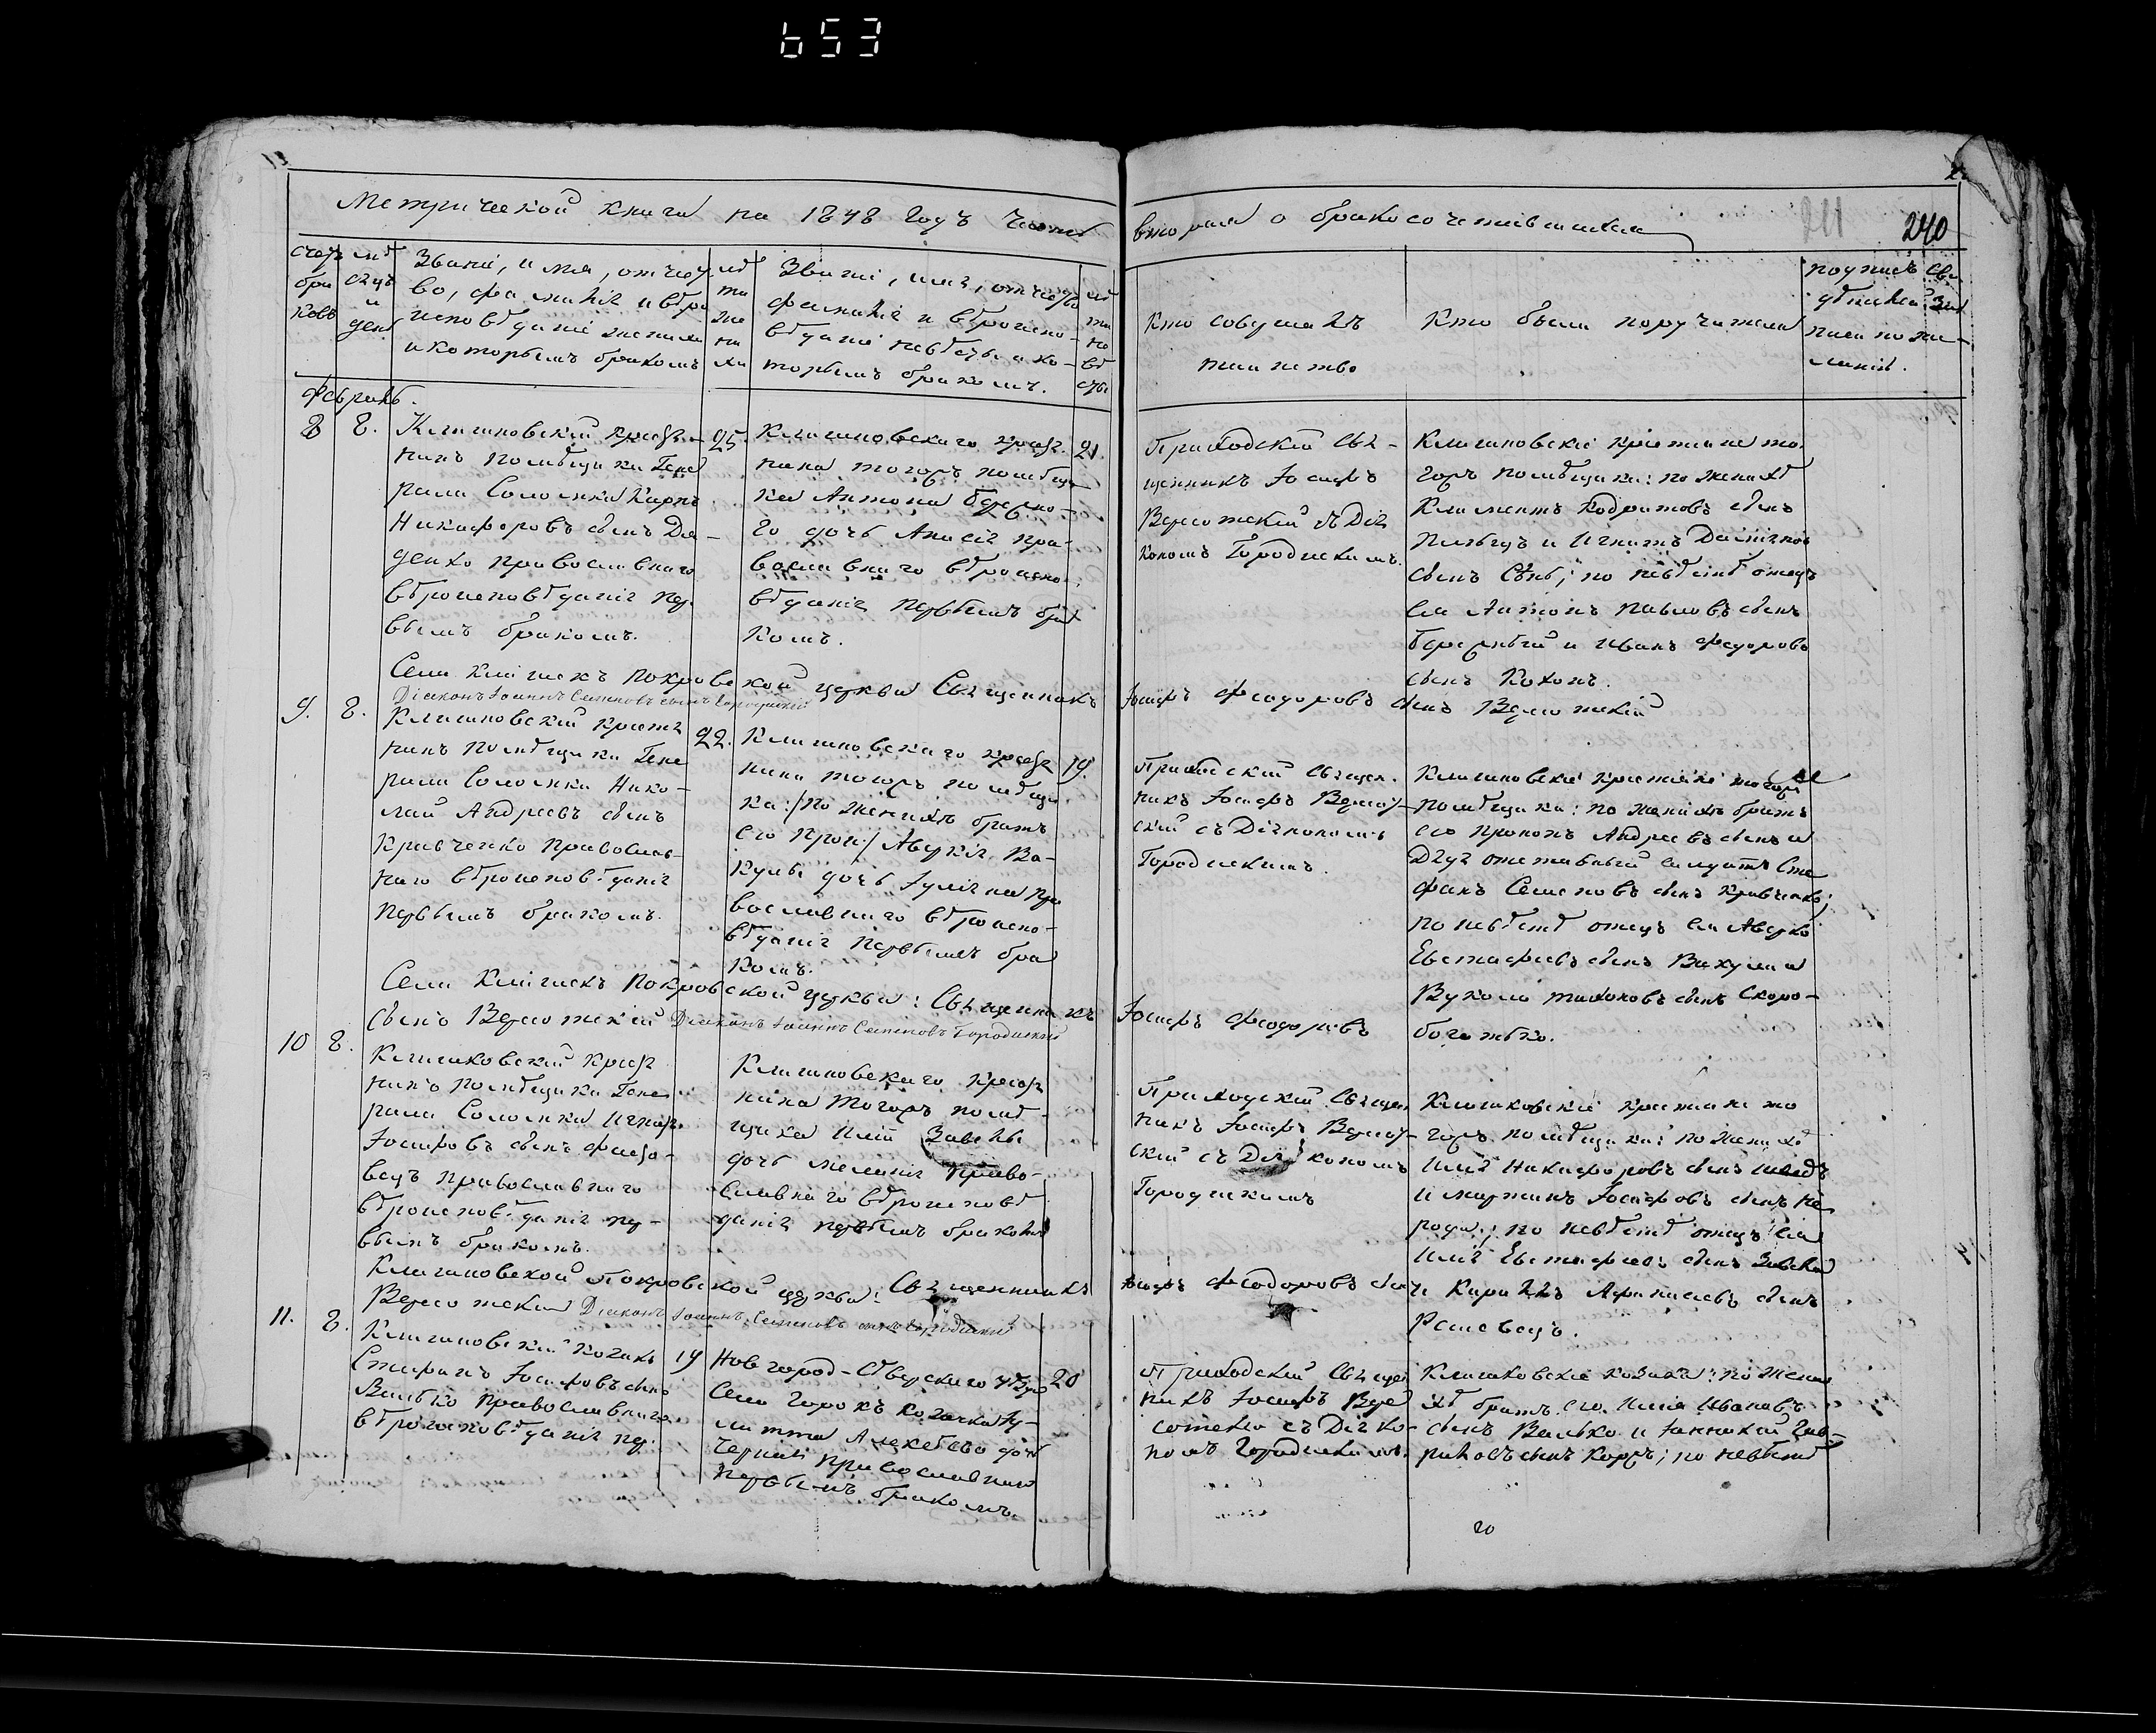 653
Метрической книги на 1848 годъ Часть
вторая о бракосочетавшихся
211
240
счетъ браковъ
мѣсяцъ и день
Званіе, имя, отчест
во, фамилія и вѣро
исповѣданіе жениха
и которымъ бракомъ
лѣта жениха
Званіе, имя, отчество
фамилія и вѣроиспо-
вѣданіе невѣсты и ко-
торымъ бракомъ.
лѣта невѣсты
Кто совершалъ
таинство
Кто были поручители
подписъ сви
дѣтелей за
писи по же-
ланію.
Февраль.
8
8.
Клишковскій крестя-
нинъ помѣщика Гене
рала Соломки Карпъ
Никифоровъ сынъ Дя-
денко Православнаго
вѣроисповѣданія пер
вымъ бракомъ.
25.
Клишковскаго крестя
нина тогоръ помѣщи
ка Антона Бережно-
го дочь Анисія пра-
вославнаго вѣроиспо
вѣданія первымъ бра
комъ.
21.
Приходскій Свя-
щенникъ Іосифъ
Вересотскій съ Дія
кономъ Городискимъ.
Клишковскіе крестяне то
горъ помѣщика: по женихѣ
Климентъ Кодратовъ сынъ
и Игнатъ
сынъ по невѣстѣ отецъ
ея Антонъ Павловъ сынъ
Бережный и Иванъ Федоровъ
сынъ Кохонъ.
Села Клишекъ Покровской церкви Священникъ Іосифъ Феодоровъ сынъ Вересотскій
Діаконъ Іоаннъ Семеновъ сынъ Городискій
9.
8.
Клишковскій крестя
нинъ помѣщика Гене
рала Соломки Нико-
лай Андреевъ сынъ
Кравченко Православ-
наго вѣроисповѣданія
первымъ бракомъ.
22.
Клишковскаго крестя
нина тогоръ помѣщи
ка:/по женихѣ братъ
его Прок:/ Аверкія Ва-
кулы дочь Іуліяна пра
вославнаго вѣроиспо-
вѣданія первымъ бра
комъ.
19.
Приходскій Священ.
никъ Іосифъ Вересот-
скій съ Діякономъ
Городискимъ.
Клишковскіе крестяне тогоръ
помѣщика: по женихѣ братъ
его Прокопъ Андреевъ сынъ и
Дядя отставный салдатъ Сте
фанъ Семеновъ сынъ Кравченко;
по невѣстѣ отецъ ея Аверко
Евстафіевъ сынъ Вакула и
Вукола сынъ Скоро-
богатько.
Села Клишекъ Покровской церкви: Священникъ Іосифъ Феодоровъ
сынъ Вересотскій Діаконъ Іоаннъ Семеновъ Городискій
10
8.
Клишковскій крестя
нинъ помѣщика Гене
рала Соломки Игнатъ
Іосифовъ сынъ
Православнаго
вѣроисповѣданія пер-
вымъ бракомъ.
Клишковскаго крестя
нина тогоръ помѣ-
щика Иліи Завалы
дочь Меланія Право-
славнаго вѣроисповѣ
данія первымъ бракомъ
Приходскій Священ
никъ Іосифъ Вересот-
скій съ Діякономъ
Городискимъ
Клишковскіе крестяне то
горъ помѣщика: по женихѣ
Илія Никифоровъ сынъ
и Мартинъ Іосифовъ сынъ
по невѣстѣ отецъ ея
Илія Евстафіевъ сынъ Завала
и Кирилъ Афанасіевъ сынъ
Клишковской Покровской церкви: Священникъ Іосифъ Феодоровъ сынъ
Вересотскій Діаконъ Іоаннъ Семеновъ сынъ Городискій
11.
8.
Клишковскій козакъ
Стефанъ Іосифовъ сынъ
Валько Православнаго
вѣроисповѣданія пер.
19
Новгород-Сѣверскаго уѣзда
села козачка Іу-
литта Алексѣева дочь
православнаго
первымъ бракомъ.
20
Приходскій Священ
никъ Іосифъ Вере
сотскій съ Діяко-
номъ Городискимъ.
Клишковскіе козаки: по жени
хѣ братъ его Илія Ивановъ
сынъ Валько и Іаннакій Гав-
риловъ сынъ Коржъ; по невѣстѣ